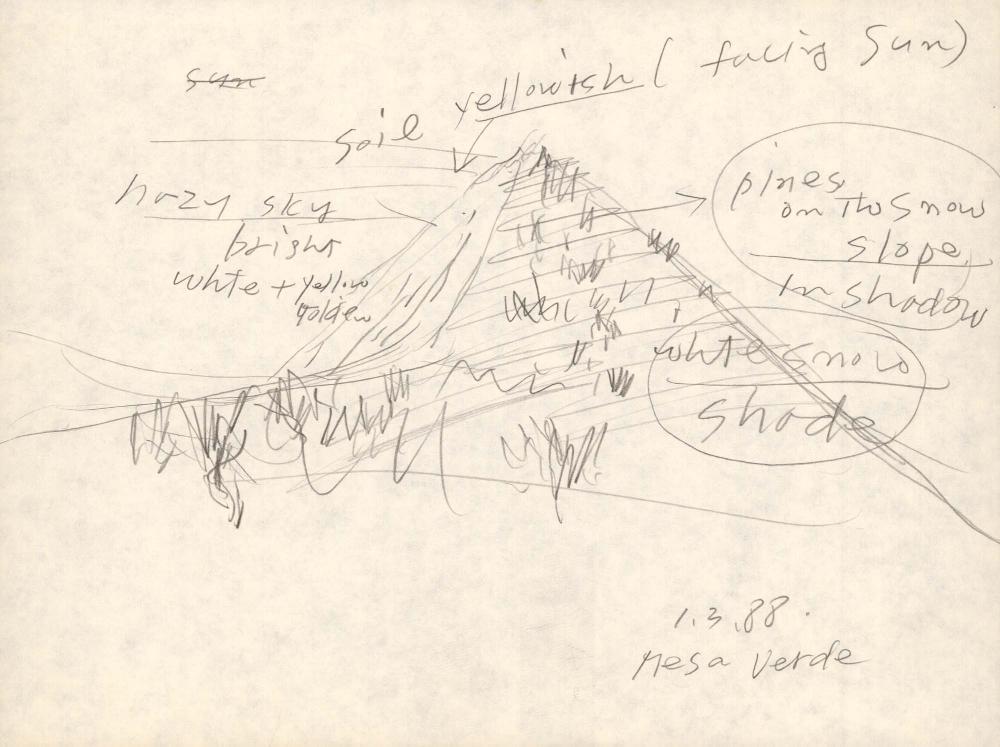 sun
soil yellowish (facing sun)
hazy sky
bright
white + yellow
golden
pines
on the snow
slope
in shadow
white snow
shade
1.3.88.
Mesa Verde